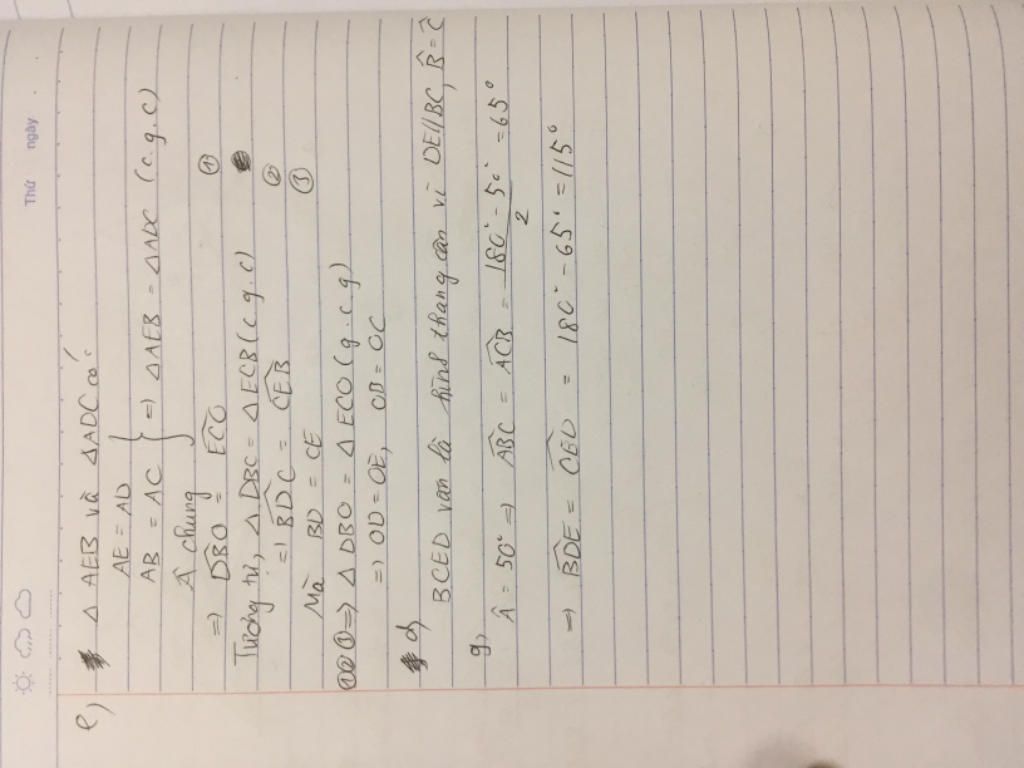 Thứ ngày
e) Δ AEB và ΔADC có:
AE = AD
AB = AC } => ΔAEB = ΔADC (c.g.c)
Â chung
=> \widehat{DBO} = \widehat{ECO} ①
Tương tự, Δ DBC = ΔECB (c.g.c)
=> \widehat{BDC} = \widehat{CEB} ②
Mà BD = CE ③
①②③ => Δ DBO = Δ ECO (g.c.g)
=> OD = OE, OB = OC
BCED vẫn là hình thang cân vì DE//BC, B̂ = Ĉ
g,
Â = 50° => \widehat{ABC} = \widehat{ACB} = \frac{180° - 50°}{2} = 65°
=> \widehat{BDE} = \widehat{CED} = 180° - 65° = 115°